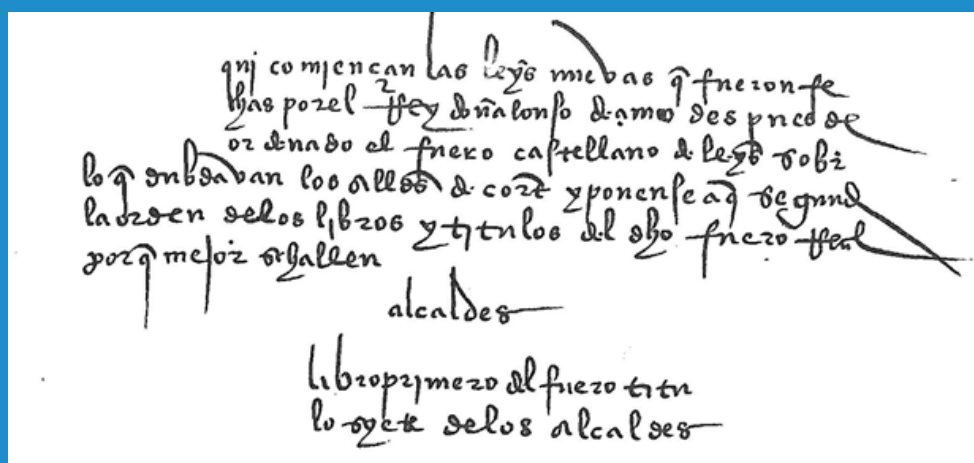 qui comiençan las leyes nueuas q̃ fueron fe
chas por el Rey don alonso decimo despues de
ordenado el fuero castellano de leyes sobr
lo q̃ dubdavan los alldes de cort y ponense aq̃ segund
la orden delos libros y titulos del dho fuero Real
porq̃ mejor se hallen
alcaldes
libro primero del fuero titu
lo syete delos alcaldes